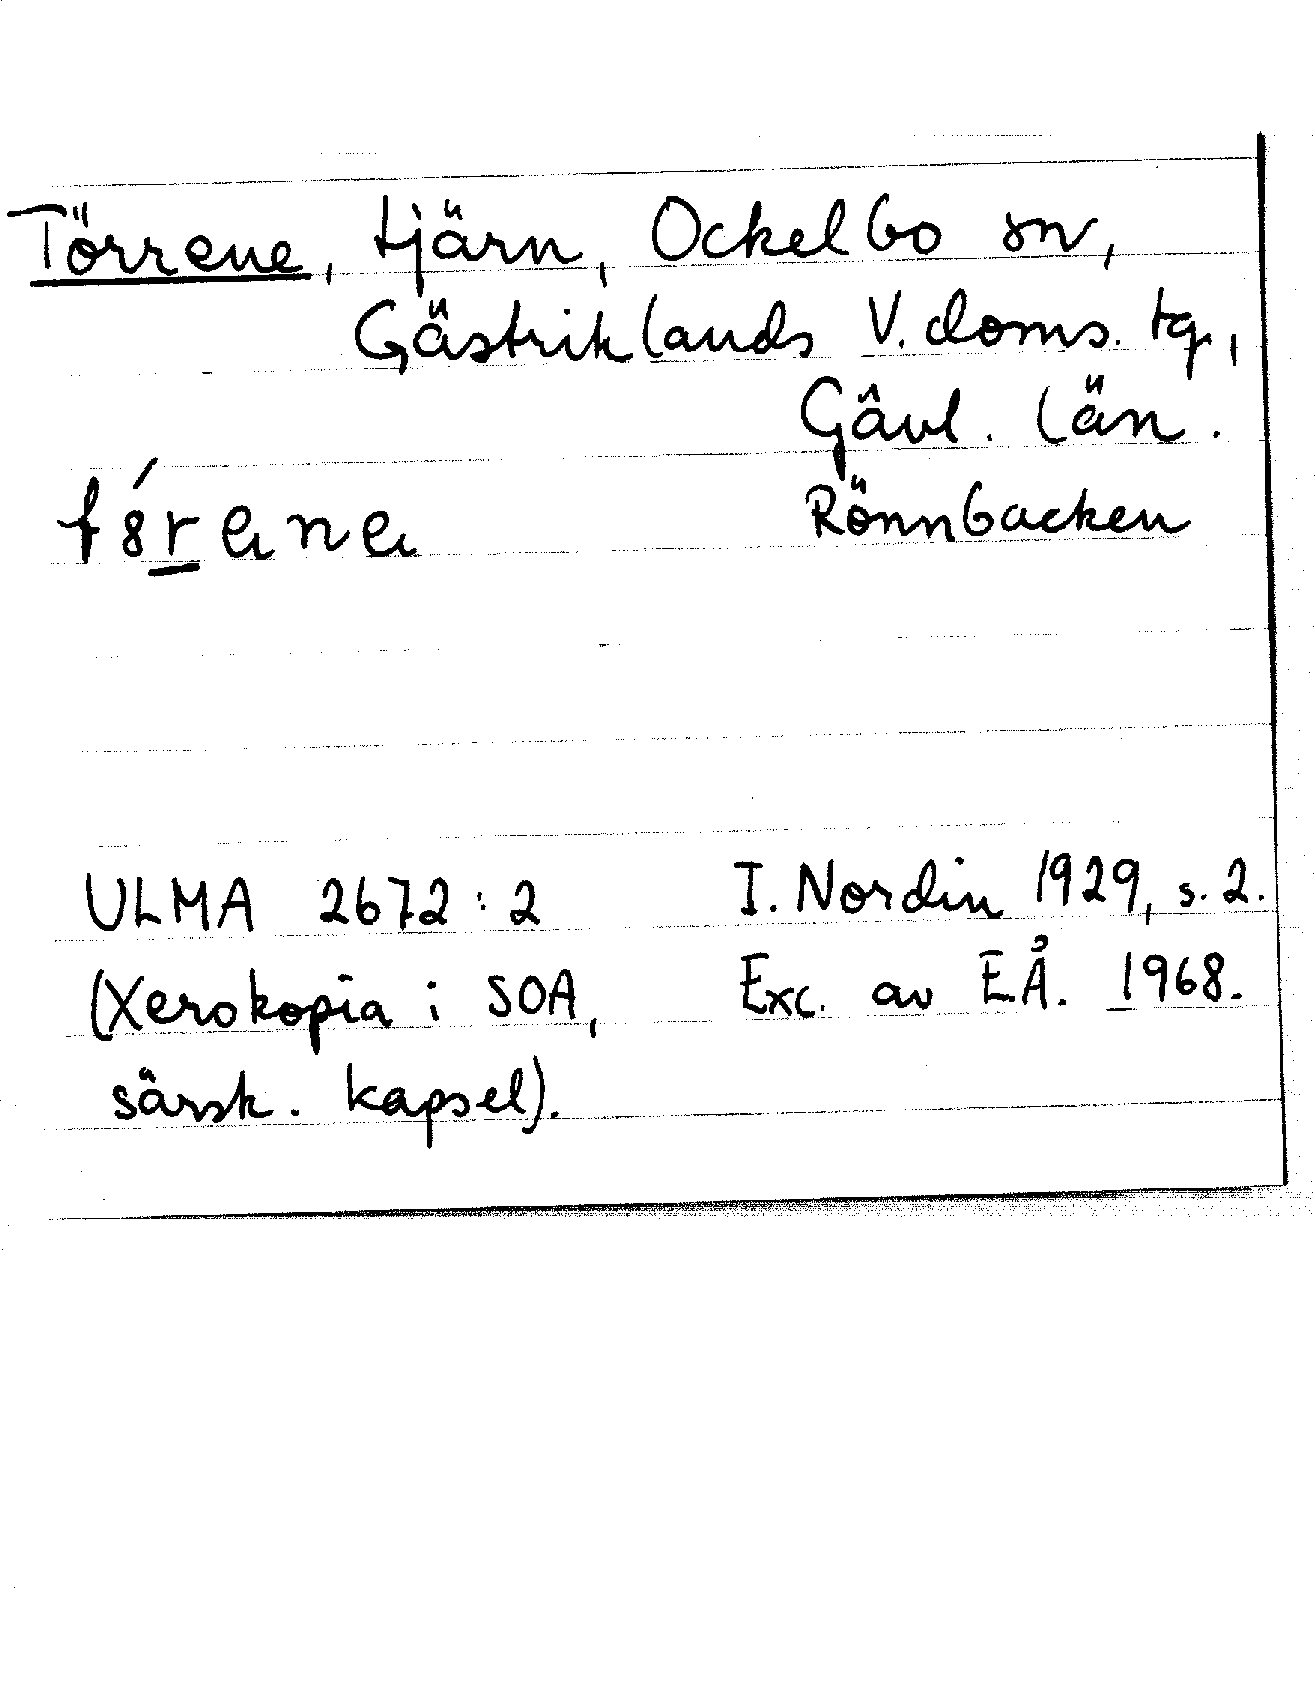 Törrene, tjärn, Ockelbo sn,
Gästriklands V. doms. tg,
Gävl. län.
Rönnbacken
ULMA 2672:2 I. Nordin 1929, s. 2.
(Xerokopia i SOA, Exc. av E.Å. 1968.
särsk. kapsel).